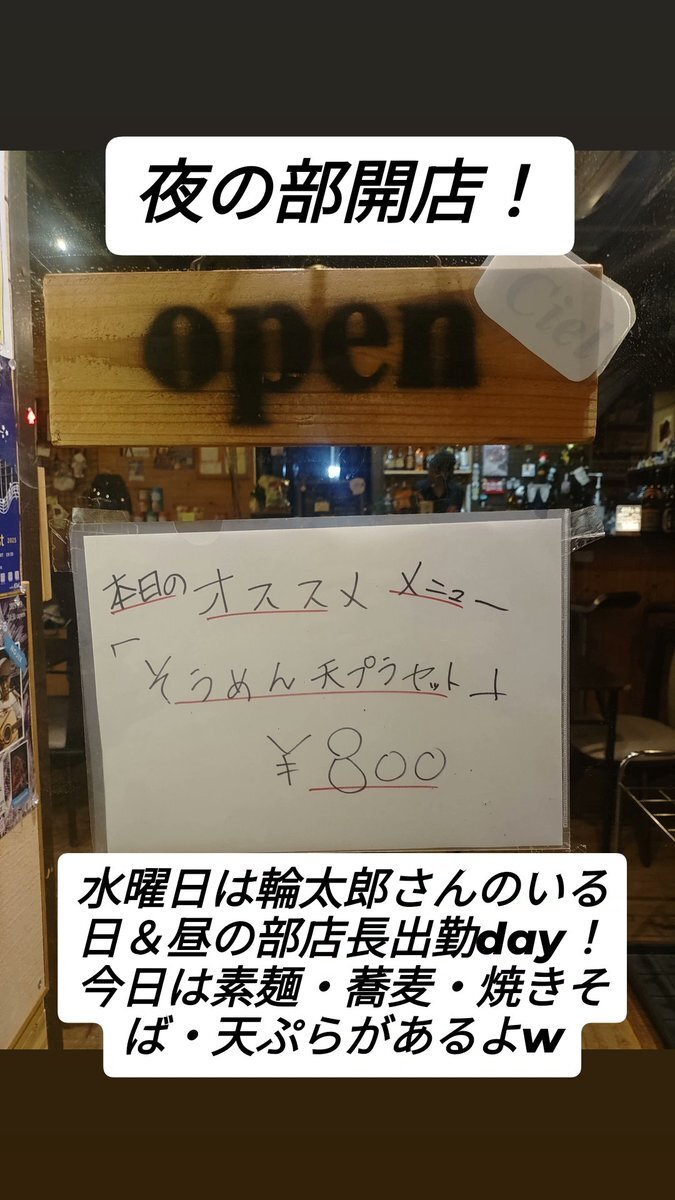 夜の部開店！
open
Ciel
本日のオススメメニュー
「そうめん天プラセット」
¥800
水曜日は輪太郎さんのいる
日＆昼の部店長出勤day！
今日は素麺・蕎麦・焼きそ
ば・天ぷらがあるよw